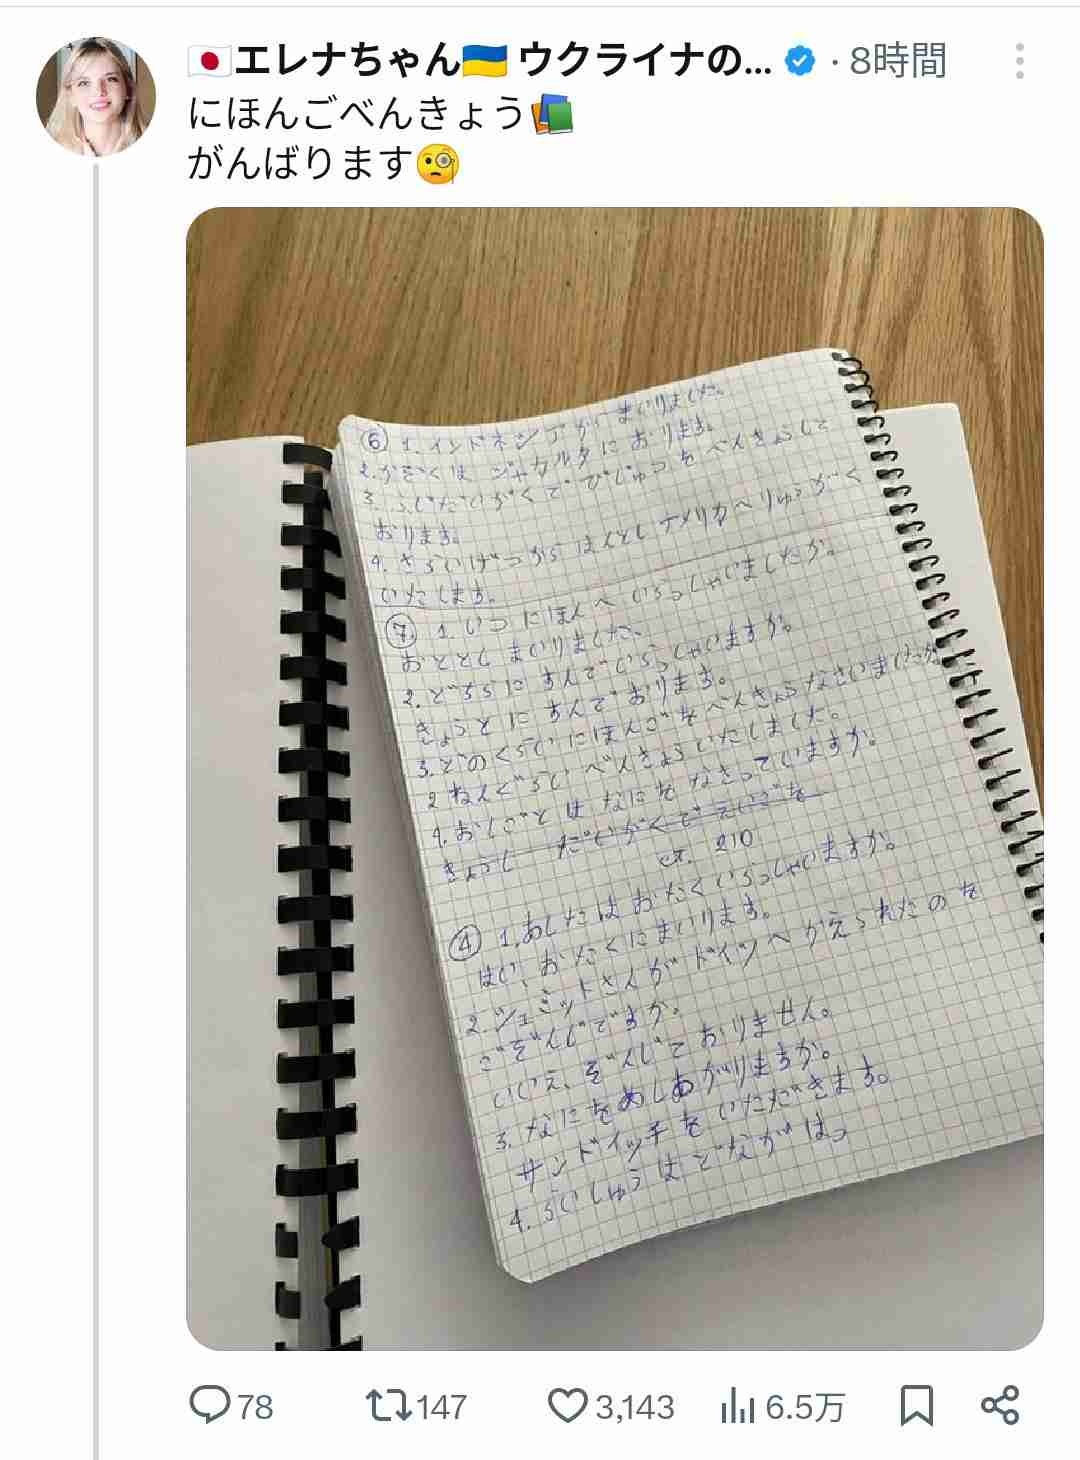 🇯🇵エレナちゃん🇺🇦 ウクライナの... · 8時間
にほんごべんきょう📚
がんばります🧐
⑥ 1. インドネシアからまいりました。
2. かぞくは ジャカルタ に おります。
3. ふじだいがくで びじゅつを べんきょうして
おります。
4. さらいげつから はんとし アメリカへ りゅうがく
いたします。
⑦ 1. いつ にほんへ いらっしゃいましたか。
おととし まいりました。
2. どちらに すんで いらっしゃいますか。
きょうとに すんで おります。
3. どのくらい にほんごを べんきょうなさいましたか
2 ねんぐらい べんきょういたしました。
4. おしごとは なにを なさっていますか。
きょうし だいがくで えいごを
ст. 210
④ 1. あしたは おたく いらっしゃいますか。
はい、おたくにまいります。
2. シュミットさんが ドイツへ かえられたのを
ごぞんじですか。
いいえ、ぞんじて おりません。
3. なにを めしあがりますか。
サンドイッチを いただきます。
4. らいしゅうは どなたが はっ
78 147 3,143 6.5万